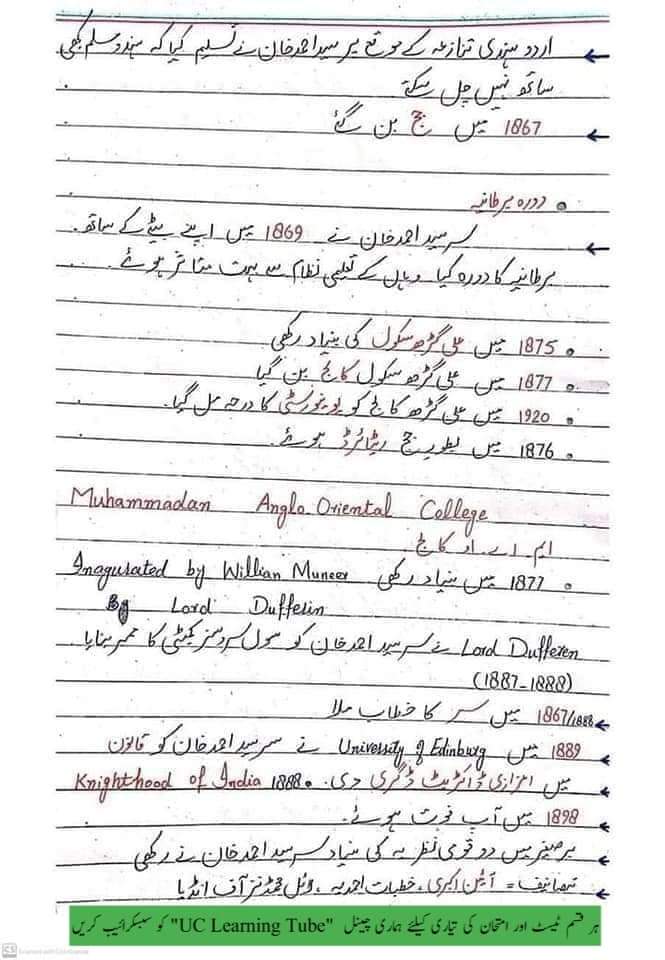 اردو ہندی تنازعہ کے موقع پر سید احمد خان نے تسلیم کیا کہ ہندو مسلم کبھی
ساتھ نہیں چل سکتے
1867 میں جج بن گئے
دورہ برطانیہ
سر سید احمد خان نے 1869 میں اپنے بیٹے کے ساتھ
برطانیہ کا دورہ کیا۔ وہاں کے تعلیمی نظام سے بہت متاثر ہوئے۔
1875 میں علی گڑھ سکول کی بنیاد رکھی
1877 میں علی گڑھ سکول کالج بن گیا
1920 میں علی گڑھ کالج کو یونیورسٹی کا درجہ مل گیا۔
1876 میں بطور جج ریٹائرڈ ہوئے۔
Muhammadan Anglo Oriental College
ایم۔اے۔او کالج
1877 میں بنیاد رکھی Inagurated by Willian Muneer
By Lord Dufferin
Lord Dufferen نے سر سید احمد خان کو سول سروسز کمیٹی کا ممبر بنایا
(1887-1888)
1867/1888 میں سر کا خطاب ملا
1889 میں University of Edinburg نے سر سید احمد خان کو قانون
میں اعزازی ڈاکٹریٹ ڈگری دی۔ 1888 Knighthood of India
1898 میں آپ فوت ہوئے۔
برصغیر میں دو قومی نظریہ کی بنیاد سر سید احمد خان نے رکھی
تصانیف = آئین اکبری، خطبات احمدیہ، لائل محمڈنز آف انڈیا
ہر قسم ٹیسٹ اور امتحان کی تیاری کیلئے ہماری چینل "UC Learning Tube" کو سبسکرائیب کریں
CS Scanned with CamScanner